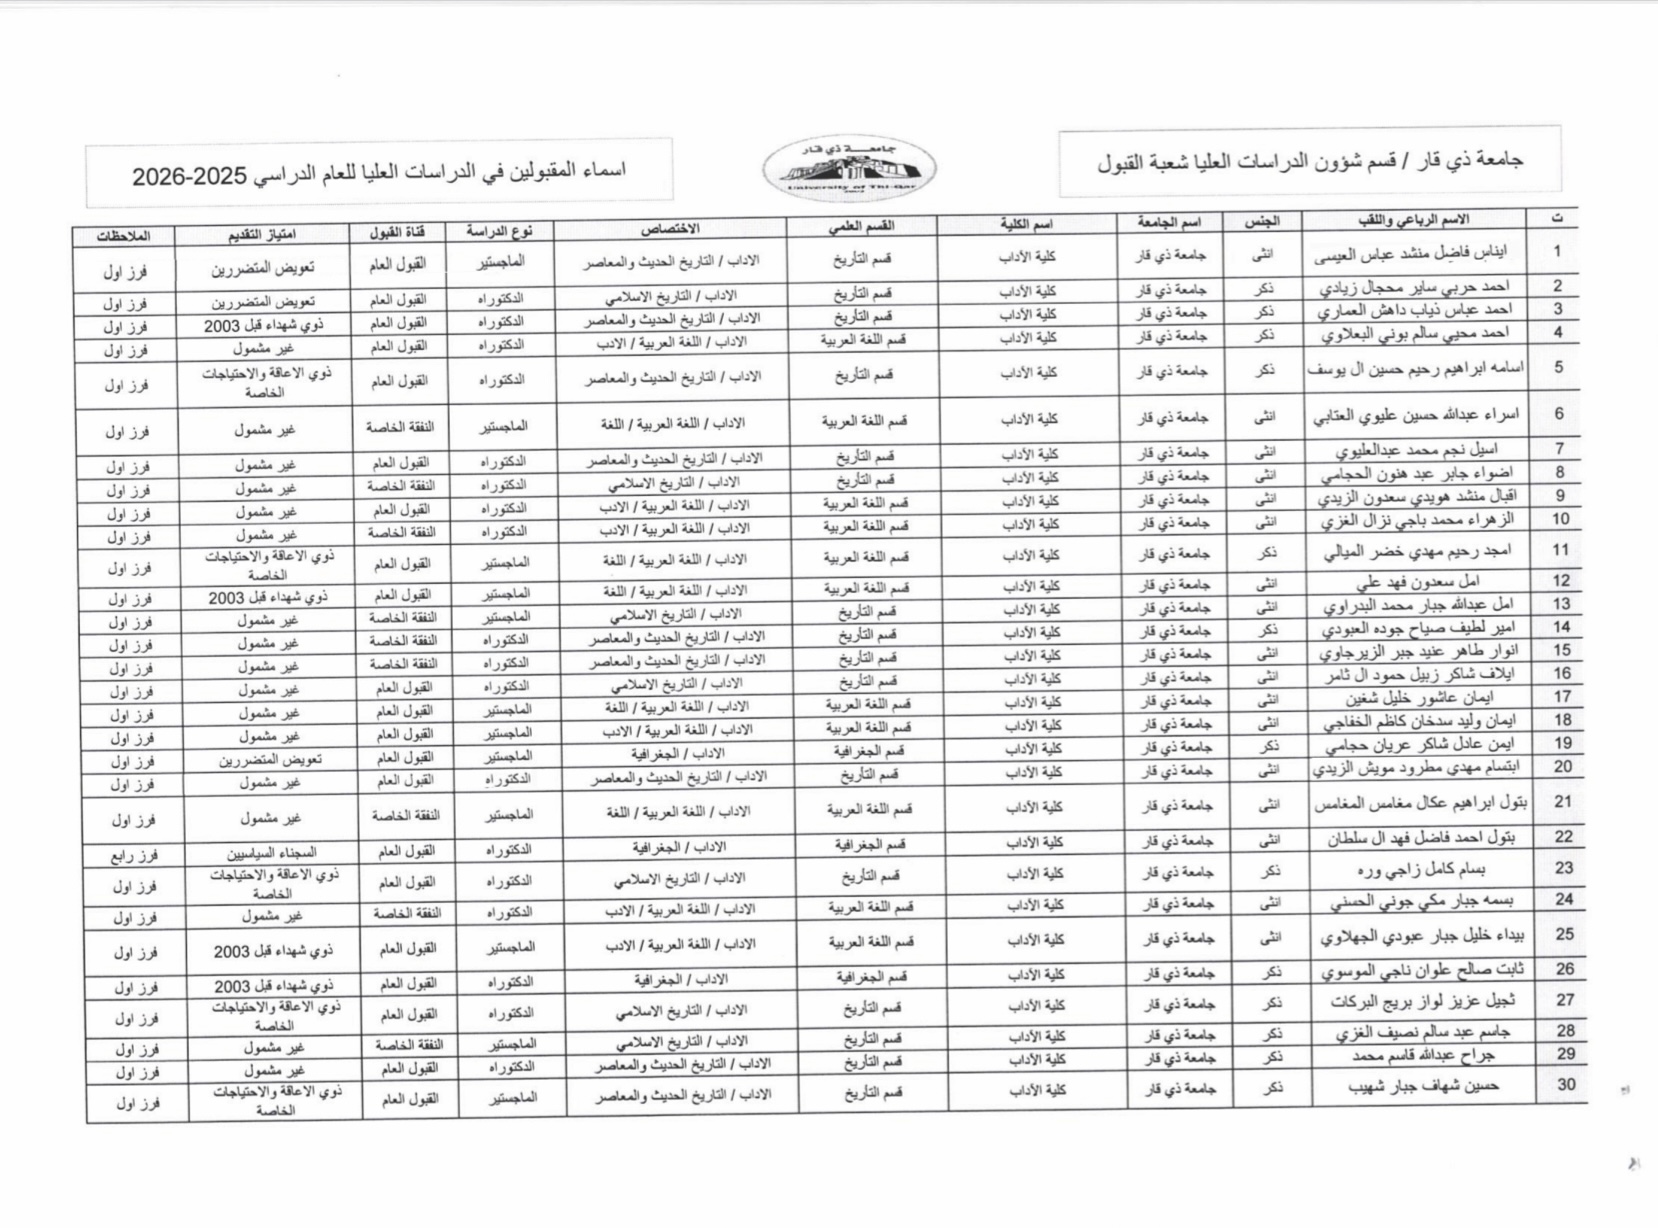 جامعة ذي قار / قسم شؤون الدراسات العليا شعبة القبول
جامعة ذي قار
University of Thi-Qar
اسماء المقبولين في الدراسات العليا للعام الدراسي 2025-2026
ت الاسم الرباعي واللقب الجنس اسم الجامعة اسم الكلية القسم العلمي الاختصاص نوع الدراسة قناة القبول امتياز التقديم الملاحظات
1 ايناس فاضل منشد عباس العيسى انثى جامعة ذي قار كلية الآداب قسم التأريخ الاداب / التاريخ الحديث والمعاصر الماجستير القبول العام تعويض المتضررين فرز اول
2 احمد حربي ساير محجال زيادي ذكر جامعة ذي قار كلية الآداب قسم التأريخ الاداب / التاريخ الاسلامي الدكتوراه القبول العام تعويض المتضررين فرز اول
3 احمد عباس ذياب داهش العماري ذكر جامعة ذي قار كلية الآداب قسم التأريخ الاداب / التاريخ الحديث والمعاصر الدكتوراه القبول العام ذوي شهداء قبل 2003 فرز اول
4 احمد محيي سالم بوني البعلاوي ذكر جامعة ذي قار كلية الآداب قسم اللغة العربية الاداب / اللغة العربية / الادب الدكتوراه القبول العام غير مشمول فرز اول
5 اسامه ابراهيم رحيم حسين ال يوسف ذكر جامعة ذي قار كلية الآداب قسم التأريخ الاداب / التاريخ الحديث والمعاصر الدكتوراه القبول العام ذوي الاعاقة والاحتياجات الخاصة فرز اول
6 اسراء عبدالله حسين عليوي العتابي انثى جامعة ذي قار كلية الآداب قسم اللغة العربية الاداب / اللغة العربية / اللغة الماجستير النفقة الخاصة غير مشمول فرز اول
7 اسيل نجم محمد عبدالعليوي انثى جامعة ذي قار كلية الآداب قسم التأريخ الاداب / التاريخ الحديث والمعاصر الدكتوراه القبول العام غير مشمول فرز اول
8 اضواء جابر عبد هنون الحجامي انثى جامعة ذي قار كلية الآداب قسم التأريخ الاداب / التاريخ الاسلامي الدكتوراه النفقة الخاصة غير مشمول فرز اول
9 اقبال منشد هويدي سعدون الزيدي انثى جامعة ذي قار كلية الآداب قسم اللغة العربية الاداب / اللغة العربية / الادب الدكتوراه القبول العام غير مشمول فرز اول
10 الزهراء محمد باجي نزال الغزي انثى جامعة ذي قار كلية الآداب قسم اللغة العربية الاداب / اللغة العربية / الادب الدكتوراه النفقة الخاصة غير مشمول فرز اول
11 امجد رحيم مهدي خضر الميالي ذكر جامعة ذي قار كلية الآداب قسم اللغة العربية الاداب / اللغة العربية / اللغة الماجستير القبول العام ذوي الاعاقة والاحتياجات الخاصة فرز اول
12 امل سعدون فهد علي انثى جامعة ذي قار كلية الآداب قسم اللغة العربية الاداب / اللغة العربية / اللغة الماجستير القبول العام ذوي شهداء قبل 2003 فرز اول
13 امل عبدالله جبار محمد البدراوي انثى جامعة ذي قار كلية الآداب قسم التأريخ الاداب / التاريخ الاسلامي الماجستير النفقة الخاصة غير مشمول فرز اول
14 امير لطيف صياح جوده العبودي ذكر جامعة ذي قار كلية الآداب قسم التأريخ الاداب / التاريخ الحديث والمعاصر الدكتوراه النفقة الخاصة غير مشمول فرز اول
15 انوار طاهر عنيد جبر الزيرجاوي انثى جامعة ذي قار كلية الآداب قسم التأريخ الاداب / التاريخ الحديث والمعاصر الدكتوراه النفقة الخاصة غير مشمول فرز اول
16 ايلاف شاكر زبيل حمود ال ثامر انثى جامعة ذي قار كلية الآداب قسم التأريخ الاداب / التاريخ الاسلامي الدكتوراه القبول العام غير مشمول فرز اول
17 ايمان عاشور خليل شغين انثى جامعة ذي قار كلية الآداب قسم اللغة العربية الاداب / اللغة العربية / اللغة الماجستير القبول العام غير مشمول فرز اول
18 ايمان وليد سدخان كاظم الخفاجي انثى جامعة ذي قار كلية الآداب قسم اللغة العربية الاداب / اللغة العربية / الادب الماجستير القبول العام غير مشمول فرز اول
19 ايمن عادل شاكر عريان حجامي ذكر جامعة ذي قار كلية الآداب قسم الجغرافية الاداب / الجغرافية الماجستير القبول العام تعويض المتضررين فرز اول
20 ابتسام مهدي مطرود مويش الزيدي انثى جامعة ذي قار كلية الآداب قسم التأريخ الاداب / التاريخ الحديث والمعاصر الدكتوراه القبول العام غير مشمول فرز اول
21 بتول ابراهيم عكال مغامس المغامس انثى جامعة ذي قار كلية الآداب قسم اللغة العربية الاداب / اللغة العربية / اللغة الماجستير النفقة الخاصة غير مشمول فرز اول
22 بتول احمد فاضل فهد ال سلطان انثى جامعة ذي قار كلية الآداب قسم الجغرافية الاداب / الجغرافية الدكتوراه القبول العام السجناء السياسيين فرز رابع
23 بسام كامل زاجي وره ذكر جامعة ذي قار كلية الآداب قسم التأريخ الاداب / التاريخ الاسلامي الدكتوراه القبول العام ذوي الاعاقة والاحتياجات الخاصة فرز اول
24 بسمه جبار مكي جوني الحسني انثى جامعة ذي قار كلية الآداب قسم اللغة العربية الاداب / اللغة العربية / الادب الدكتوراه النفقة الخاصة غير مشمول فرز اول
25 بيداء خليل جبار عبودي الجهلاوي انثى جامعة ذي قار كلية الآداب قسم اللغة العربية الاداب / اللغة العربية / الادب الماجستير القبول العام ذوي شهداء قبل 2003 فرز اول
26 ثابت صالح علوان ناجي الموسوي ذكر جامعة ذي قار كلية الآداب قسم الجغرافية الاداب / الجغرافية الدكتوراه القبول العام ذوي شهداء قبل 2003 فرز اول
27 ثجيل عزيز لواز بريج البركات ذكر جامعة ذي قار كلية الآداب قسم التأريخ الاداب / التاريخ الاسلامي الدكتوراه القبول العام ذوي الاعاقة والاحتياجات الخاصة فرز اول
28 جاسم عبد سالم نصيف الغزي ذكر جامعة ذي قار كلية الآداب قسم التأريخ الاداب / التاريخ الاسلامي الماجستير النفقة الخاصة غير مشمول فرز اول
29 جراح عبدالله قاسم محمد ذكر جامعة ذي قار كلية الآداب قسم التأريخ الاداب / التاريخ الحديث والمعاصر الدكتوراه القبول العام غير مشمول فرز اول
30 حسين شهاف جبار شهيب ذكر جامعة ذي قار كلية الآداب قسم التأريخ الاداب / التاريخ الحديث والمعاصر الماجستير القبول العام ذوي الاعاقة والاحتياجات الخاصة فرز اول